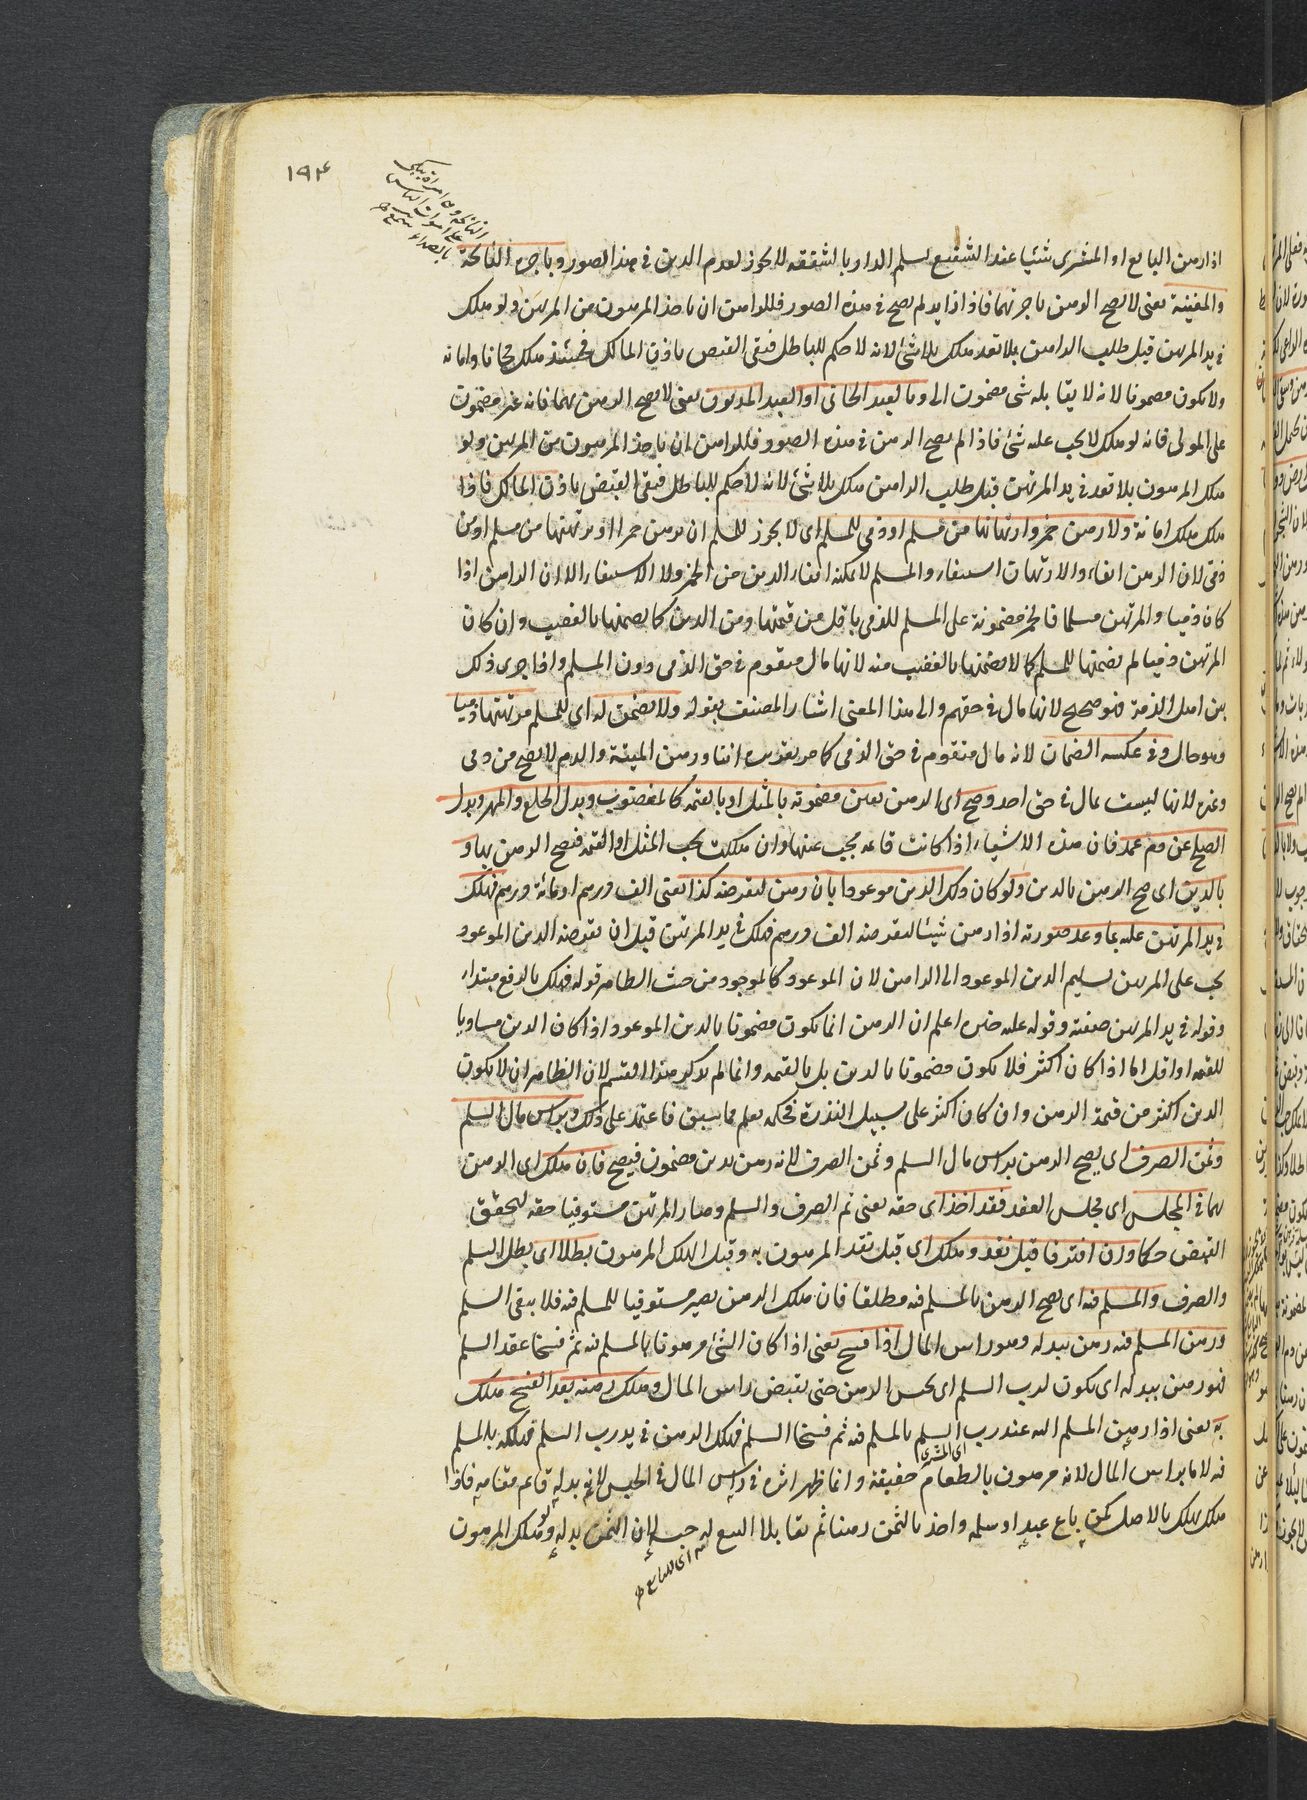 ١٩٤
النائحة وهي امرأة تبكي
على اموات الناس
بالصداء
اذا رهن البايع او المشترى شيئا عند الشفيع ليسلم الدار بالشفعة لا يجوز لعدم الدين في هذا الصور وباجرة النائحة
والمغنية يعنى لا يصح الرهن باجرتهما فاذا لم يصح في هذه الصور فللراهن ان ياخذ المرهون من المرتهن ولو هلك
في يد المرتهن قبل طلب الراهن بلا تعد هلك بلا شئ لانه لا حكم للباطل فبقى القبض باذن المالك فحينئذ هلك مجانا وامانة
ولا يكون مضمونا لانه لا يقابله شئ مضمون وبالعبد الجانى او العبد المديون يعنى لا يصح الرهن بهما فانه غير مضمون
على المولى فانه لو هلك لا يجب عليه شئ فاذا لم يصح الرهن في هذه الصور فللراهن ان ياخذ المرهون من المرتهن ولو
هلك المرهون بلا تعد في يد المرتهن قبل طلب الراهن هلك بلا شئ لانه لا حكم للباطل فبقى القبض باذن المالك فاذا
هلك هلك امانة ولا رهن خمر وارتهانها من مسلم او ذمى للمسلم اى لا يجوز للمسلم ان يرهن خمرا او يرتهنها من مسلم او من
ذمى لان الرهن ايفاء والارتهان استيفاء والمسلم لا يمكنه ايفاء الدين من الخمر ولا الاستيفاء الا ان الراهن اذا
كان ذميا والمرتهن مسلما فالخمر مضمونة على المسلم للذمى باقل من قيمتها ومن الدين كما يضمنها بالغصب وان كان
المرتهن ذميا لم يضمنها للمسلم كما لا يضمنها بالغصب منه لانها مال متقوم في حق الذمى دون المسلم واذا جرى ذلك
بين اهل الذمة فهو صحيح لانها مال في حقهم والى هذا المعنى اشار المصنف بقوله ولا يضمن له اى للمسلم مرتهنها ذميا
وهو حال وفي عكسه الضمان لانه مال متقوم في حق الذمى كما مر تقديره انفا ورهن الميتة والدم لا يصح من ذمى
وغيره لانها ليست بمال في حق احد وصح اى الرهن بعين مضمونة بالمثل او بالقيمة كالمغصوب وبدل الخلع والمهر وبدل
الصلح عن دم عمد فان هذه الاشياء اذا كانت قائمة يجب عينها وان هلكت يجب المثل او القيمة فصح الرهن بها و
بالدين اى صح الرهن بالدين ولو كان ذلك الدين موعودا بان رهن ليقرضه كذا يعنى الف درهم او مائة درهم فهلك
في يد المرتهن عليه بما وعد صورته اذا رهن شيئا ليقرضه الف درهم فهلك في يد المرتهن قبل ان يقبضه الدين الموعود
يجب على المرتهن تسليم الدين الموعود الى الراهن لان الموعود كالموجود من حيث الظاهر قوله فهلك بالرفع مبتداء
وقوله في يد المرتهن صفته وقوله عليه خبره اعلم ان الرهن انما يكون مضمونا بالدين الموعود اذا كان الدين مساويا
للقيمة او اقل اما اذا كان اكثر فلا يكون مضمونا بالدين بل بالقيمة وانما لم يذكر هذا القسم لان الظاهر ان لا يكون
الدين اكثر من قيمة الرهن وان كان اكثر على سبيل الندرة فحكمه يعلم مما سبق فاعتمد على ذلك وبراس مال السلم
وثمن الصرف اى يصح الرهن براس مال السلم وثمن الصرف لانه رهن بدين مضمون فيصح فان هلك اى الرهن
بهما في المجلس اى مجلس العقد فقد اخذ اى حقه يعنى تم الصرف والسلم وصار المرتهن مستوفيا حقه لتحقق
القبض حكما وان افترقا قبل نقد وهلك اى قبل نقد المرهون به وقبل الهلك المرهون بطلا اى بطل السلم
والصرف والمسلم فيه اى يصح الرهن بالمسلم فيه مطلقا فان هلك الرهن يصير مستوفيا للمسلم فيه فلا يبقى السلم
ورهن المسلم فيه رهن ببدله وهو راس المال اذا فسخ يعنى اذا كان الشئ مرهونا بالمسلم فيه ثم فسخا عقد السلم
فهو رهن ببدله اى يكون لرب السلم اى يحبس الرهن حتى يقبض راس المال وهلك رهنه بعد الفسخ هلك
به يعنى اذا رهن المسلم اليه عند رب السلم بالمسلم فيه ثم فسخا السلم فهلك الرهن في يد رب السلم فهلكه بالمسلم
اى المشترى
فيه لا براس المال لانه مرهون بالطعام حقيقة وانما ظهر اثره في راس المال في الحبس لانه بدله قائم مقامه فاذا
هلك هلك بالاصل كمن باع عبدا وسلمه واخذ بالثمن رهنا ثم تقايلا البيع له حبسه لان الثمن بدله ولو هلك المرهون
اى للبايع